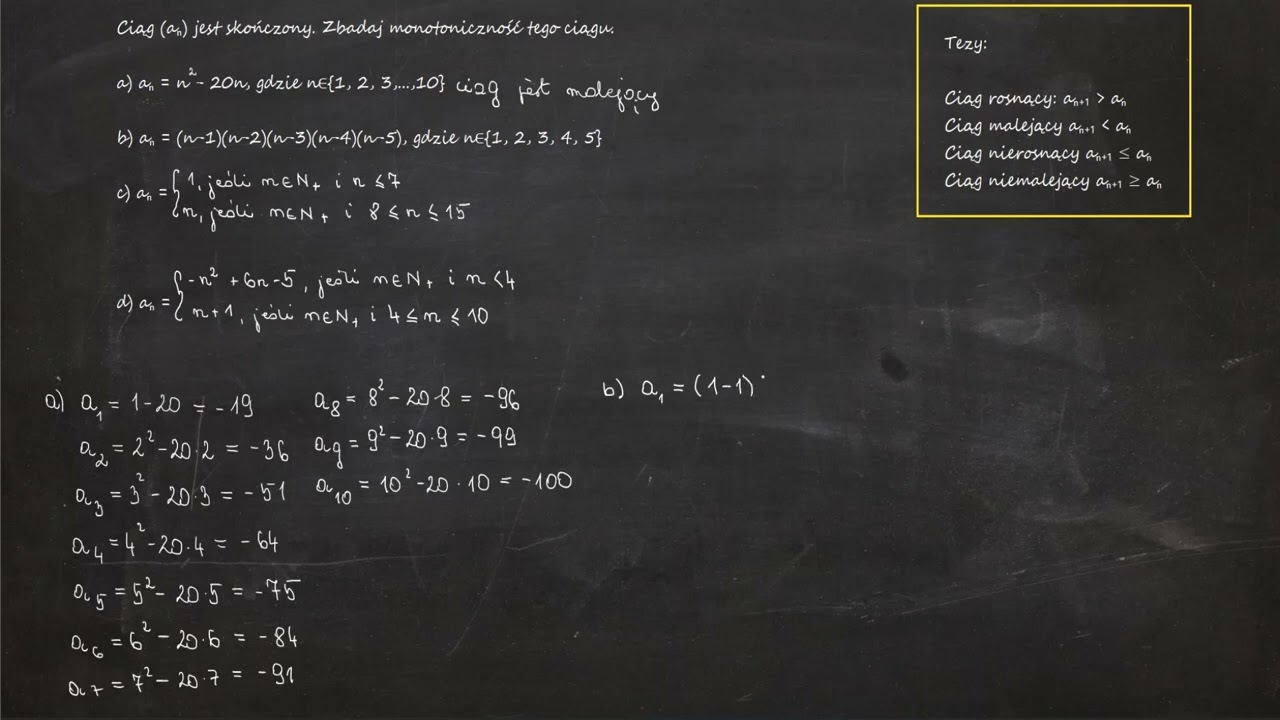 Ciąg (aₙ) jest skończony. Zbadaj monotoniczność tego ciągu.
a) aₙ = n² - 20n, gdzie n∈{1, 2, 3,...,10} ciąg jest malejący
b) aₙ = (n-1)(n-2)(n-3)(n-4)(n-5), gdzie n∈{1, 2, 3, 4, 5}
c) aₙ = { 1, jeśli n∈N₊ i n ≤ 7
n, jeśli n∈N₊ i 8 ≤ n ≤ 15
d) aₙ = { -n² + 6n - 5, jeśli n∈N₊ i n < 4
n+1, jeśli n∈N₊ i 4 ≤ n ≤ 10
Tezy:
Ciąg rosnący: aₙ₊₁ > aₙ
Ciąg malejący aₙ₊₁ < aₙ
Ciąg nierosnący aₙ₊₁ ≤ aₙ
Ciąg niemalejący aₙ₊₁ ≥ aₙ
a) a₁ = 1 - 20 = -19
a₂ = 2² - 20·2 = -36
a₃ = 3² - 20·3 = -51
a₄ = 4² - 20·4 = -64
a₅ = 5² - 20·5 = -75
a₆ = 6² - 20·6 = -84
a₇ = 7² - 20·7 = -91
a₈ = 8² - 20·8 = -96
a₉ = 9² - 20·9 = -99
a₁₀ = 10² - 20·10 = -100
b) a₁ = (1-1)·